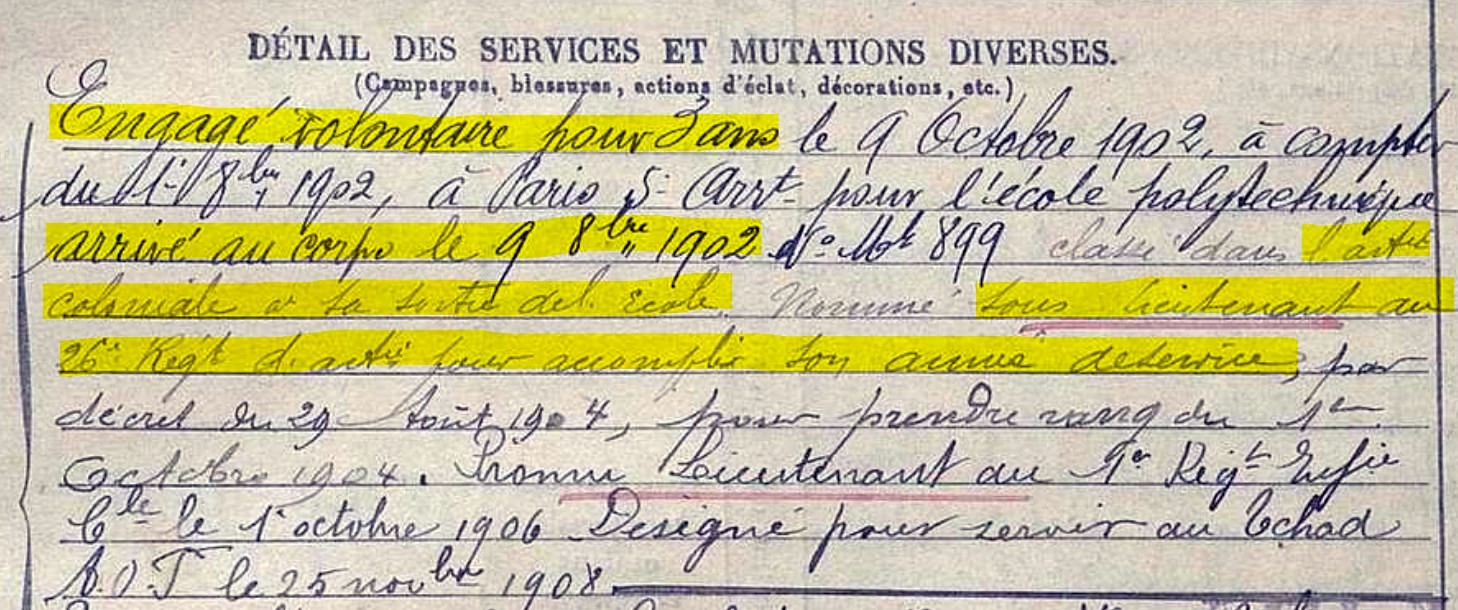 DÉTAIL DES SERVICES ET MUTATIONS DIVERSES.
(Campagnes, blessures, actions d'éclat, décorations, etc.)
Engagé volontaire pour 3 ans le 9 Octobre 1902, à compter
du 1er 8bre 1902, à Paris 5e Arrt pour l'école polytechnique
arrivé au corps le 9 8bre 1902 No Mle 899 classé dans l'artie
coloniale à sa sortie de l'Ecole. Nommé sous lieutenant au
26e Régt d'artie pour accomplir son année de service, par
décret du 29 Août 1904, pour prendre rang du 1er
Octobre 1904. Promu Lieutenant au 1er Régt Infie
Cle le 1er octobre 1906 Désigné pour servir au Tchad
le 25 novbre 1908